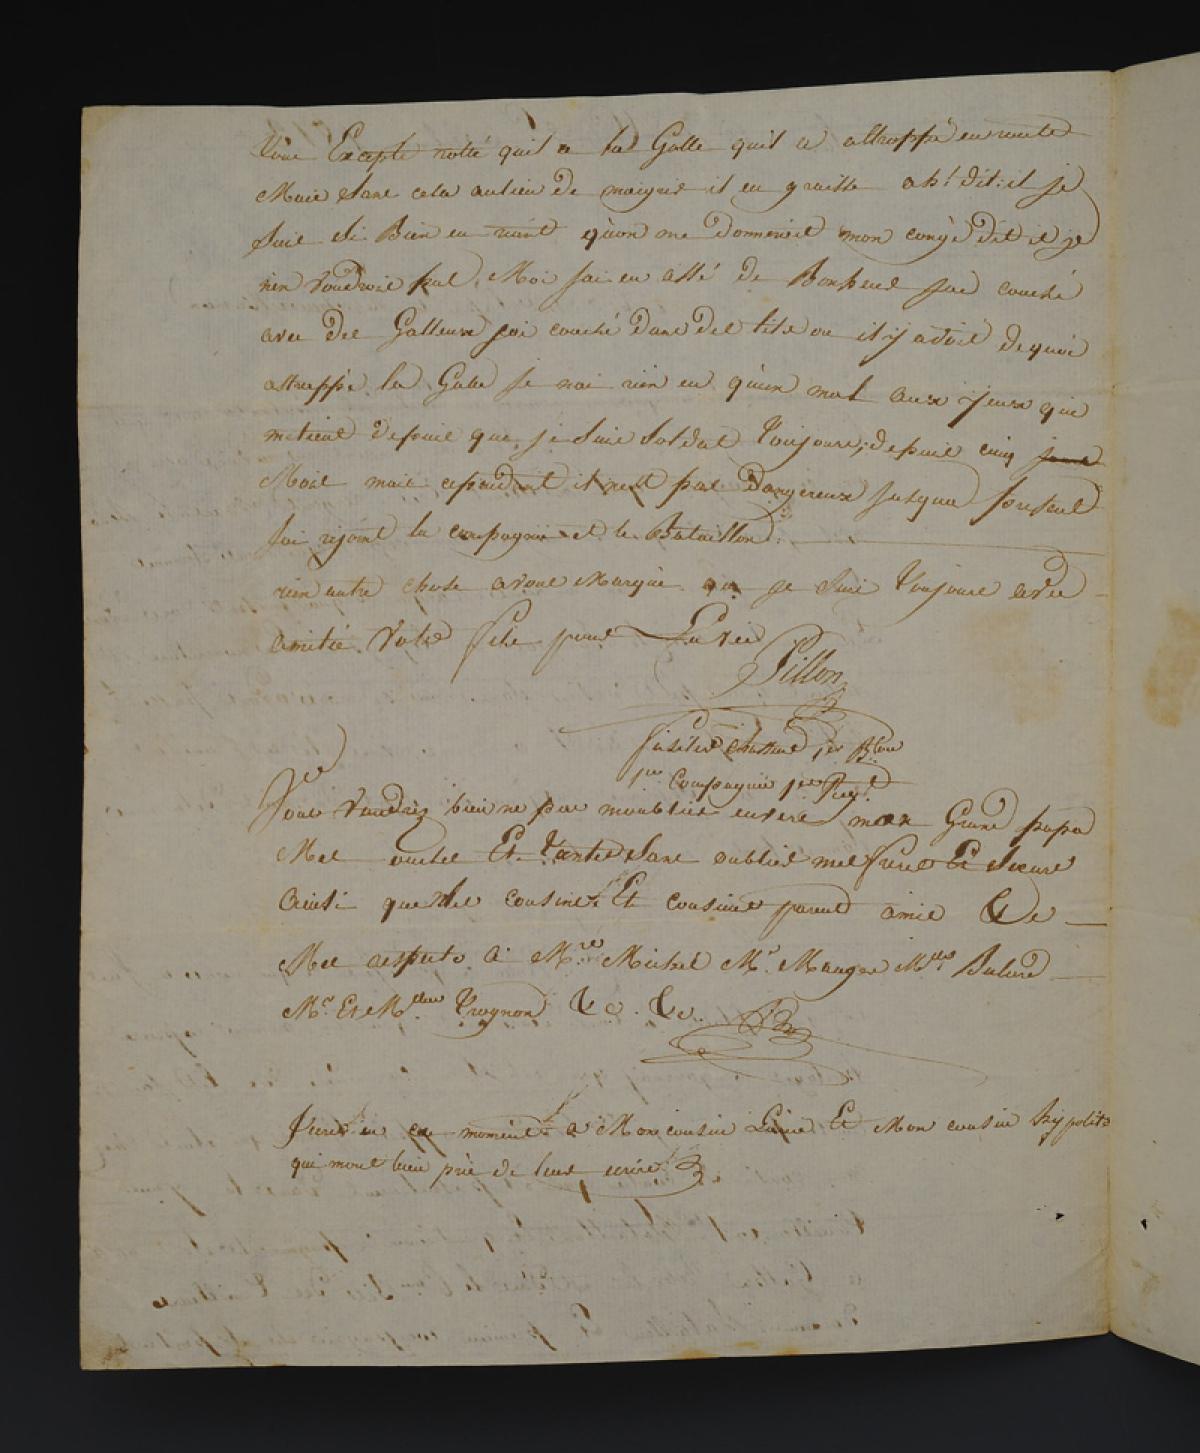 Excepté notté quil a la Galle quil a attrappé en route
Mais sans cela aulieu de maigrir il en graisse ah! dit-il je
suis si Bien en riant qu'on me Donneroit mon congé dit il je
nen voudrois pas. Moi jai eu assé de Bonheur jai couché
avec des Galleux jai couché dans des lits ou il y avoit de quoi
attrappé la Galle je nai rien eu qu'un mal aux yeux qui
me tient depuis que je suis soldat toujours, depuis cinq jours
Mois mais cependant il nest pas Dangereux jusqua
jai rejoint la compagnie et le Bataillon.
rien autre chose a vous Marqué que je suis toujours avec
amitié votre fils pour La vie
Pillon
fusilier Chasseur 1er Bton
1re Compagnie 1er Regt
Vous voudrez bien ne pas moublier envers mon Grand papa
Mes oncles Et tantes sans oublier mes freres Et soeurs
Ainsi que les cousines Et cousins parents amis &c
Mes respects a Mre Michel Mr. Mauger Mlles
Mr Et Mdme Trognon &c. &c.
en ce moment a Mon cousin Et Mon cousin hypolite
qui mont bien prié de leur ecrire